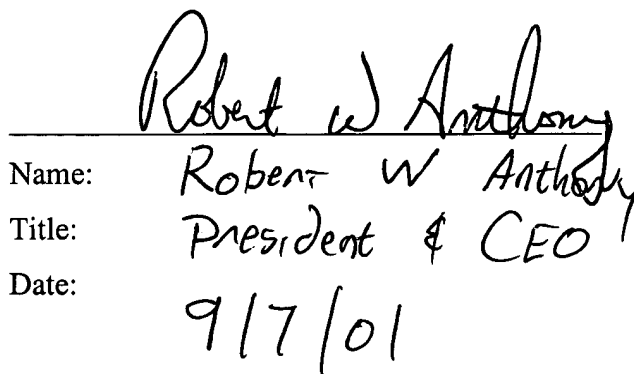 Robert W Anthony
Name: Robert W Anthony
Title: President & CEO
Date: 9/7/01